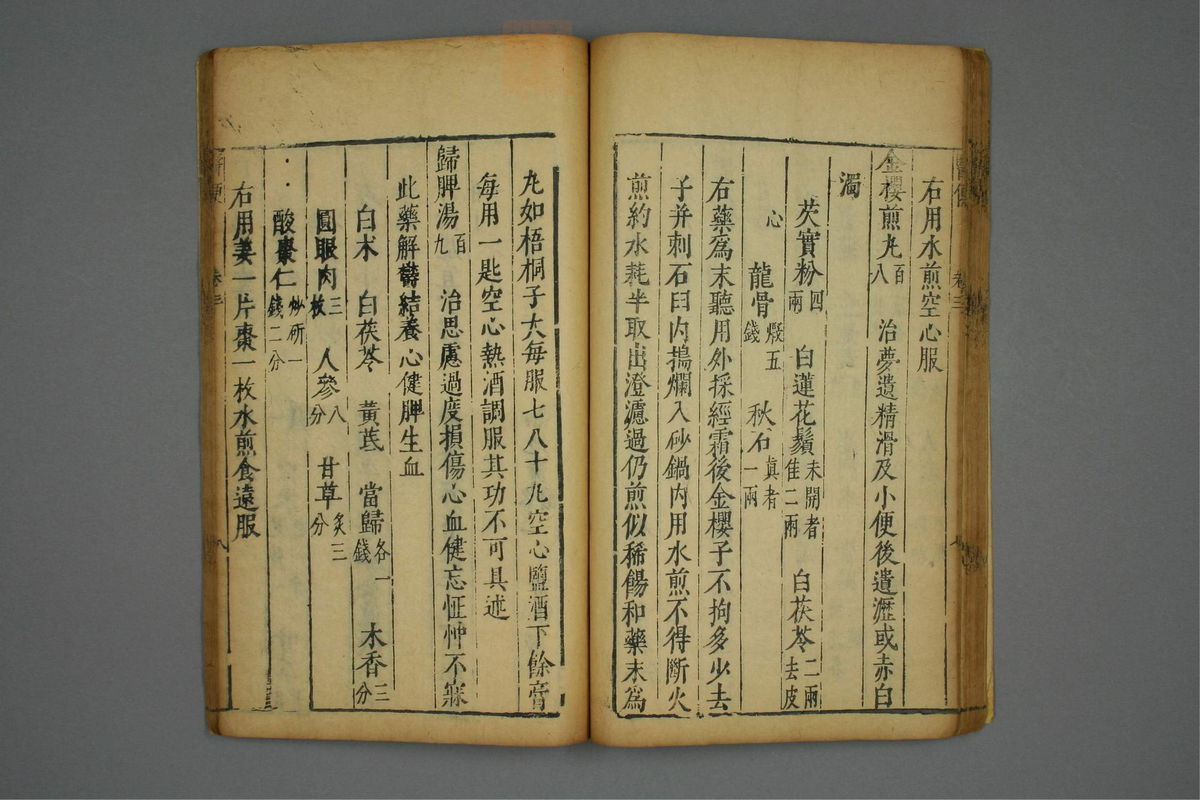 右用水煎空心服
金櫻煎丸百八 治夢遺精滑及小便後遺瀝或赤白
濁
芡實粉四兩 白蓮花鬚未開者佳二兩 白茯苓二兩去皮
心 龍骨煅五錢 秋石真者一兩
右藥爲末聽用外採經霜後金櫻子不拘多少去
子并刺石臼内搗爛入砂鍋内用水煎不得斷火
煎約水耗半取出澄濾過仍煎似稀餳和藥末爲
丸如梧桐子大每服七八十丸空心鹽酒下餘膏
每用一匙空心熱酒調服其功不可具述
歸脾湯百九 治思慮過度損傷心血健忘怔忡不寐
此藥解鬱結養心健脾生血
白术 白茯苓 黃芪 當歸各一錢 木香三分
圓眼肉三枚 人參八分 甘草炙三分
酸棗仁炒研一錢二分
右用姜一片棗一枚水煎食遠服
卷三
八